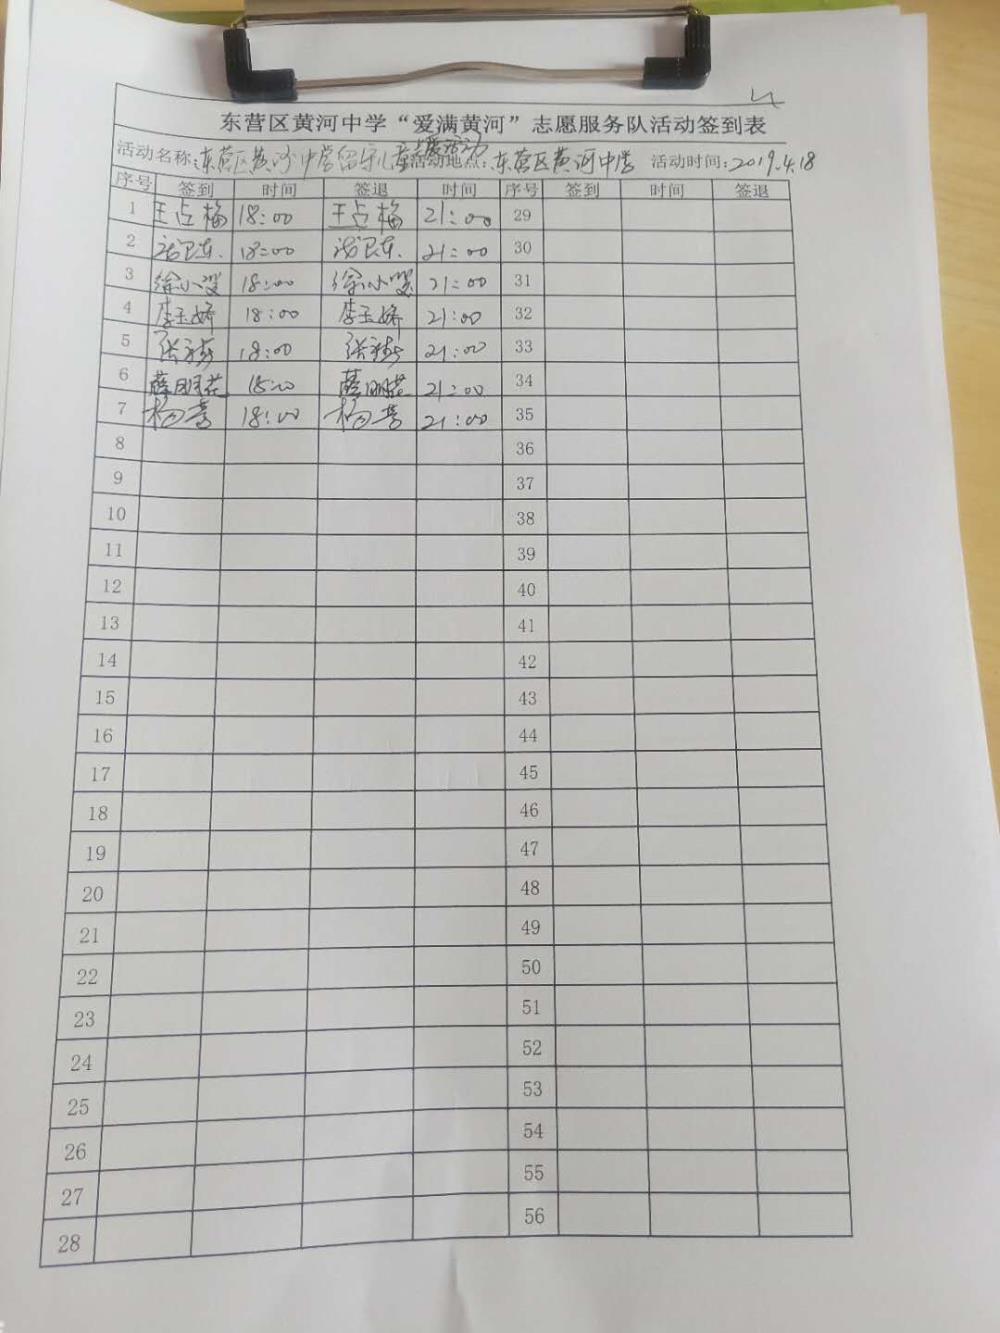 东营区黄河中学“爱满黄河”志愿服务队活动签到表
活动名称：东营区黄河中学留守儿童 活动 活动地点：东营区黄河中学 活动时间：2019.4.18
序号 签到 时间 签退 时间 序号 签到 时间 签退
1 王占梅 18:00 王占梅 21:00 29
2 18:00 21:00 30
3 18:00 21:00 31
4 李玉娇 18:00 李玉娇 21:00 32
5 18:00 21:00 33
6 薛明花 薛明花 21:00 34
7 18:00 21:00 35
8 36
9 37
10 38
11 39
12 40
13 41
14 42
15 43
16 44
17 45
18 46
19 47
20 48
21 49
22 50
23 51
24 52
25 53
26 54
27 55
28 56